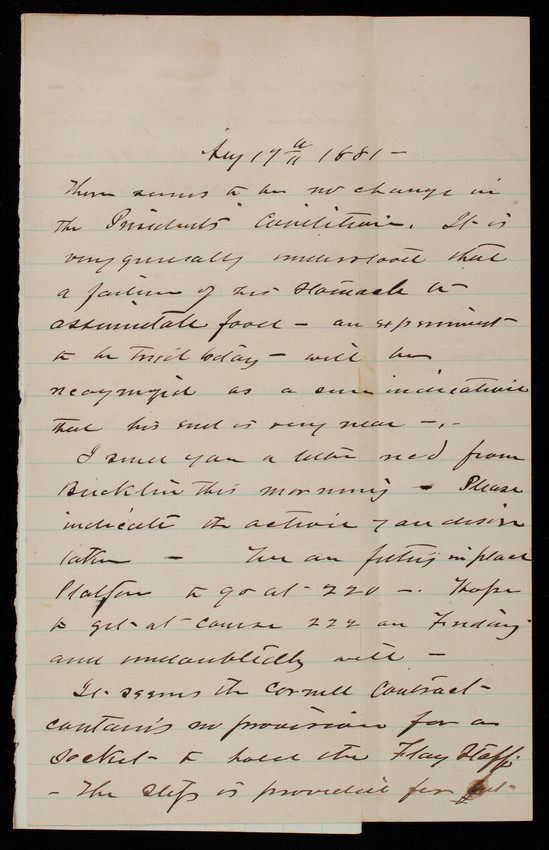 Aug 17th 1881 -
There seems to be no change in
the Presidents' Condition. It is
very generally understood that
a failure of his stomach to
assimilate food - an experiment
to be tried today - will be
recognized as a sure indication
that his end is very near - . -
I send you a letter rec'd from
Bucklin this morning - Please
indicate the action you desire
taken - We are putting in place
Platform to go at 220 - . Hope
to get at course 222 on Friday
and undoubtedly will -
It seems the Cornell Contract
contains no provision for a
Socket to hold the Flag Staff.
- The Staff is provided for but